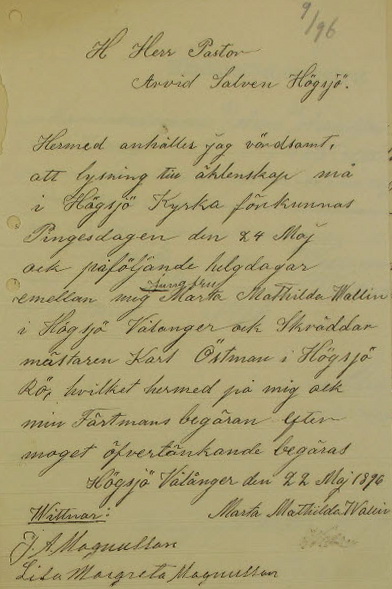 9/96
H Herr Pastor
Arvid Salven Högsjö.
Hermed anhåller jag vördsamt,
att lysning till äktenskap må
i Högsjö Kyrka förkunnas
Pingesdagen den 24 Maj
ock påföljande helgdagar
Jungfru
emellan mig Marta Mathilda Wallin
i Högsjö Välånger ock Skräddar
mästaren Karl Östman i Högsjö
Rö, hvilket hermed på mig ock
min Fästmans begäran efter
moget öfvertänkande begäras
Högsjö Välånger den 22 Maj 1896
Marta Mathilda Wallin
Wittnar:
J. A. Magnusson
Lisa Margreta Magnusson